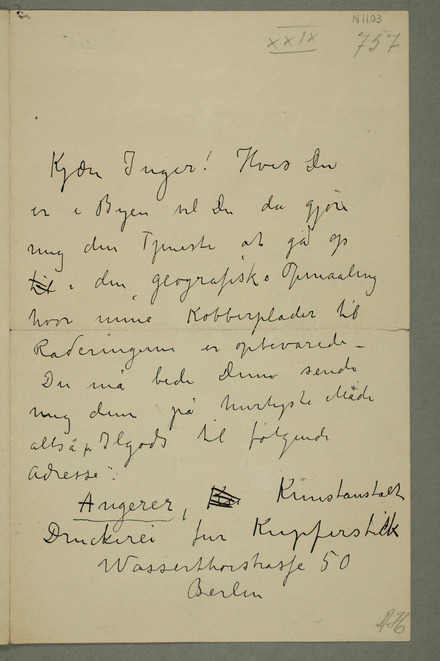 N1103
XXIX
757
Kjære Inger! Hvis Du
er i Byen vil Du da gjøre
mig den Tjeneste at gå op
til i den geografiske Opmaaling
hvor mine Kobberplader til
Raderingerne er opbevarede –
Du må bede Dem sende
mig dem på hurtigste Måde
altså pr Ilgods til følgende
Adresse:
Angerer, Kunstanstalt
Druckerei für Kupferstick
Wasserthorstrasse 50
Berlin